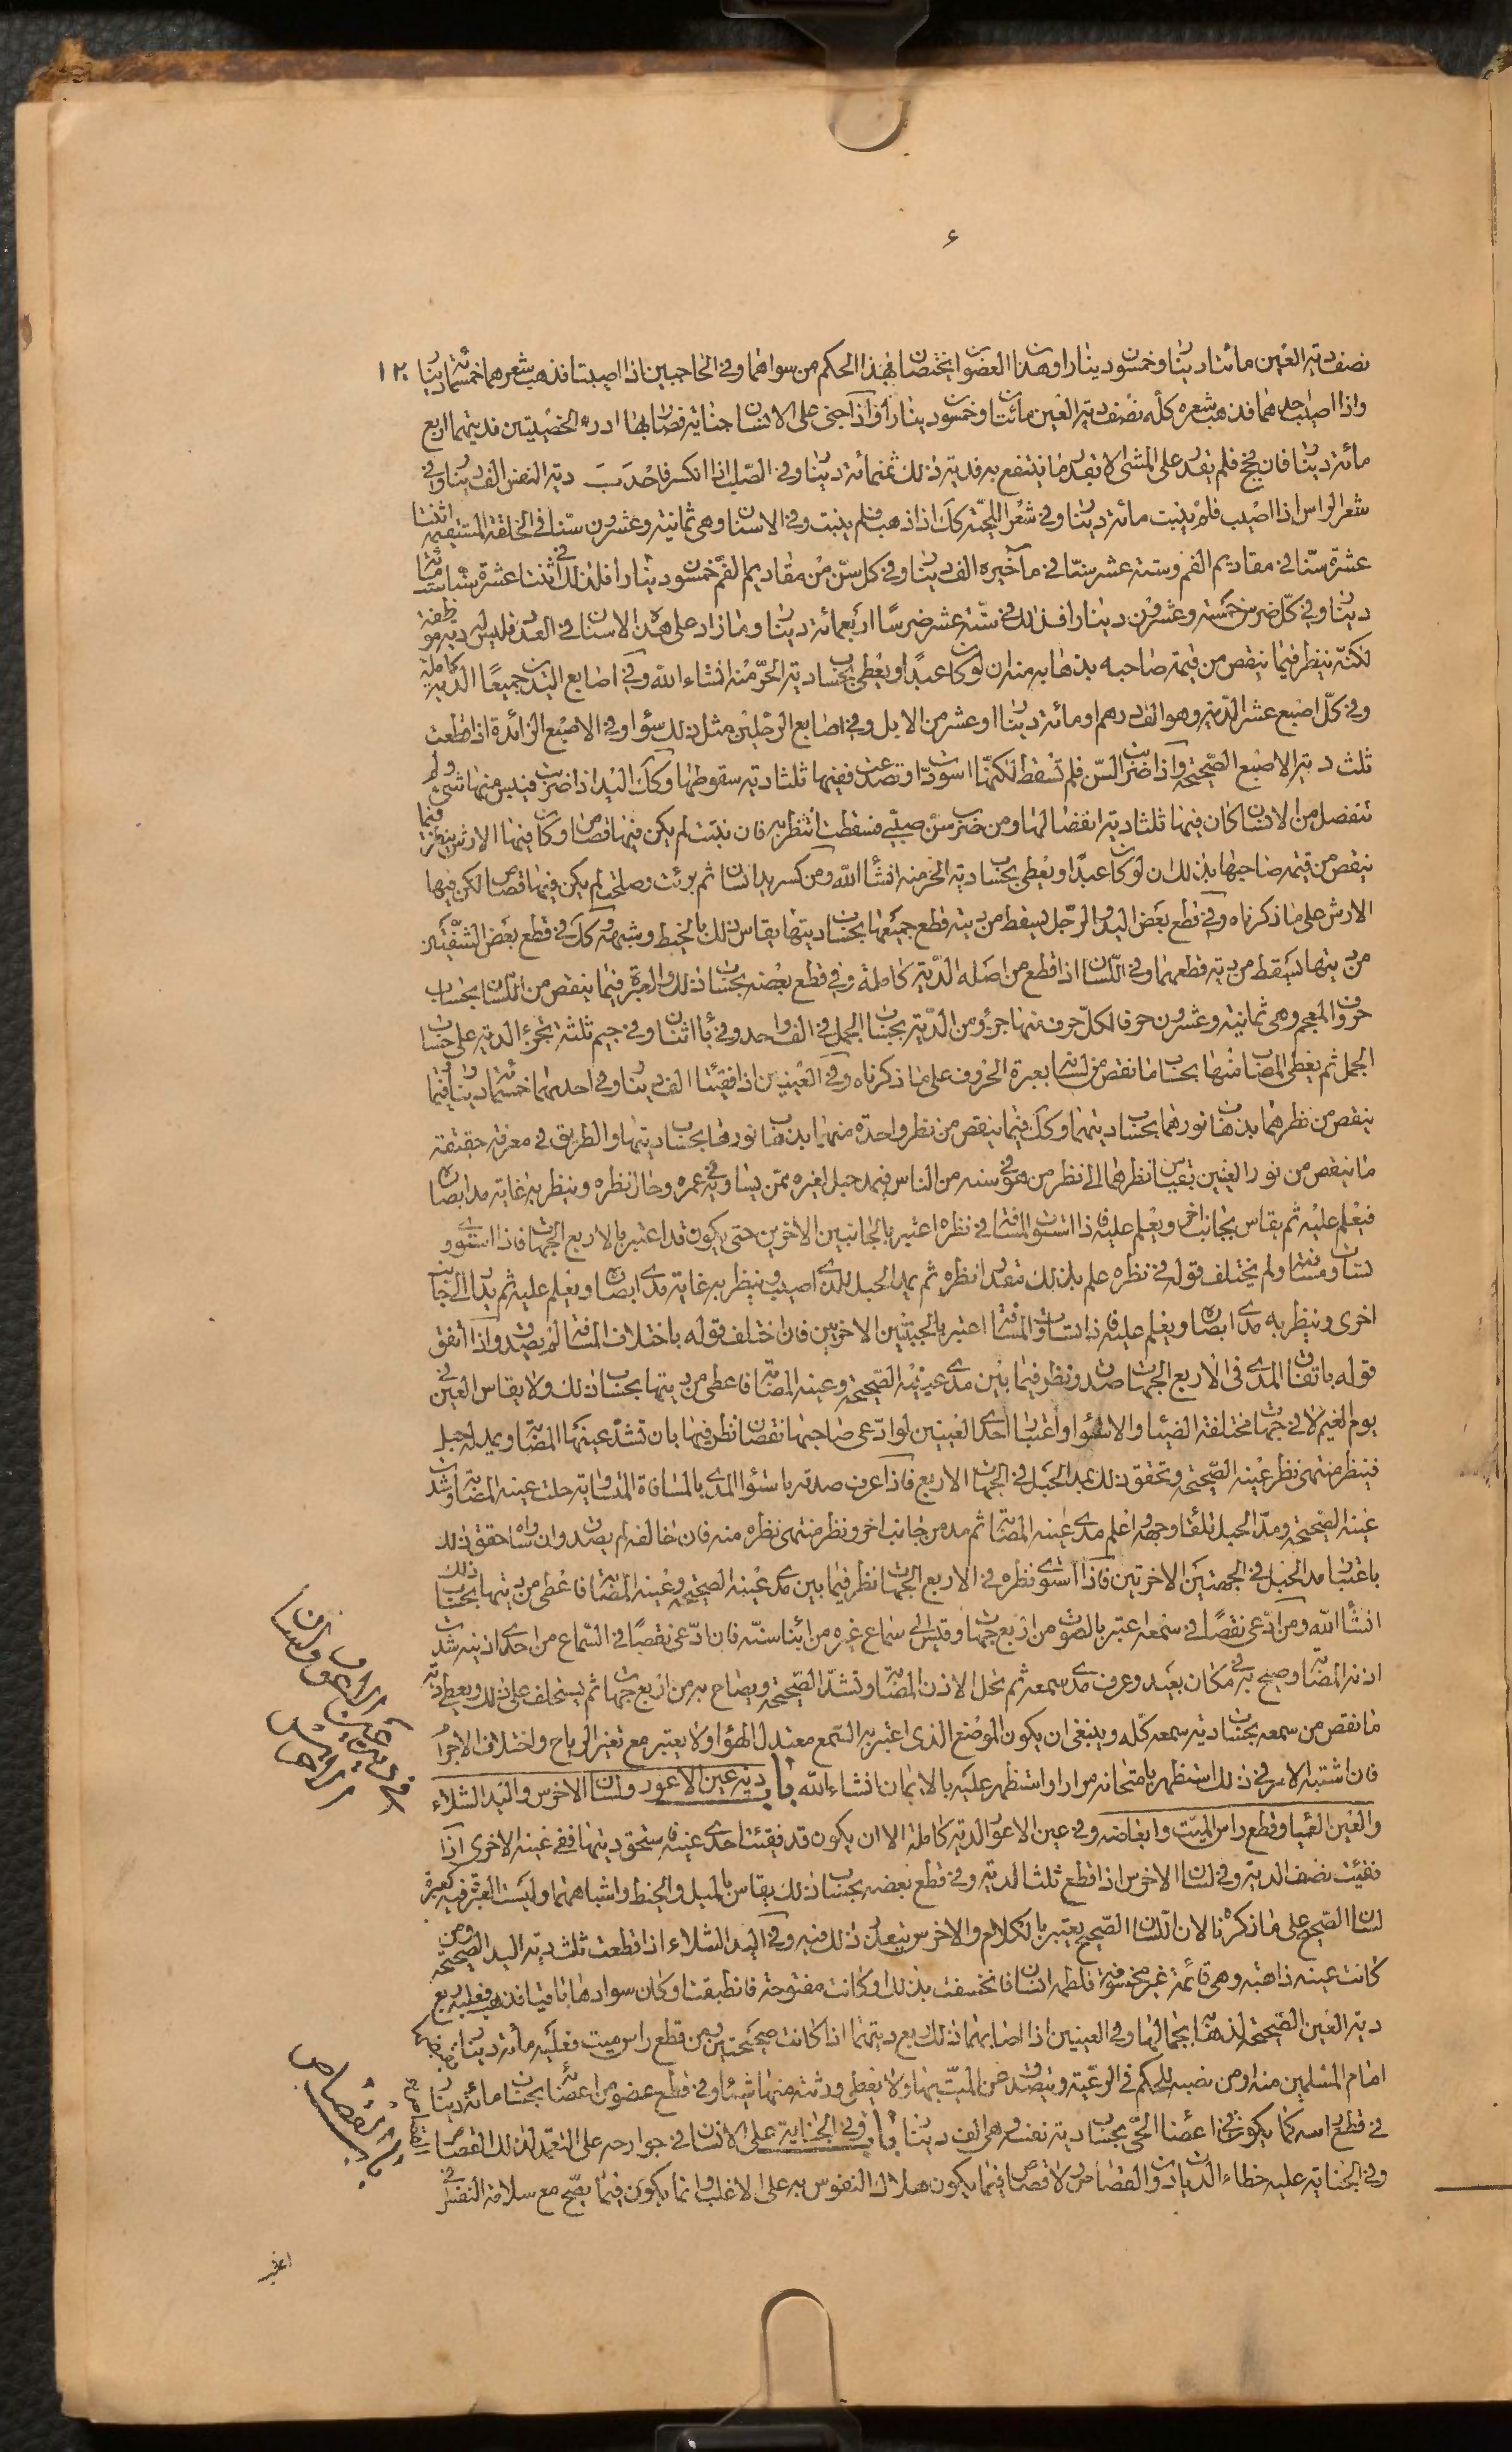 ء
١٢٠
نصف دية العين مائتا دينار وخمسون دينارا وهذان العضوان يختصان بهذا الحكم من سواهما وفي الحاجبين اذا اصيبتا فذهب شعرهما خمسمائة دينار
واذا اصيب احدهما فذهب شعره كله نصف دية العين مائتان وخمسون دينارا واذا جنى على الانسان جناية فصار بها ادرة الخصيتين فديتهما اربع
مائة دينار فان فحج فلم يقدر على المشى الا بقدر ما ينتفع به فدية ذلك ثمنمائة دينار وفي الصلب اذا انكسر فاحدَبَ دية النفس الف دينار وفي
شعر الراس اذا اصيب فلم ينبت مائة دينار وفي شعر اللحية كك اذا ذهب فلم ينبت وفي الاسنان وهى ثمانية وعشرون سنا في الخلقة المستقيمة اثنتا
عشرة سنا في مقاديم الفم وستة عشر سنا في مآخيره الف دينار وفي كل سن من مقاديم الفم خمسون دينارا فلذلك في اثنتا عشرة سنا ستمائة
دينار وفي كل ضرس خمسة وعشرون دينارا فذلك في ستة عشر ضرسا اربعمائة دينار وما زاد على هذه الاسنان في العدد فليس له دية موظفة
لكنه ينظر فيما ينقص من قيمة صاحبه بذهابه منه ان لو كان عبدا ويعطى بحساب دية الحر منه انشاء الله وفي اصابع اليدين جميعا الدية كاملة
وفي كل اصبع عشر الدية وهو الف درهم او مائة دينار او عشر من الابل وفي اصابع الرجلين مثل ذلك سواء وفي الاصبع الزائدة اذا قطعت
ثلث دية الاصبع الصحيحة واذا ضربت السن فلم تسقط لكنها اسودت او تصدعت ففيها ثلثا دية سقوطها وكك اليد اذا ضربت فيبس منها شىء ولم
تنفصل من الانسان كان فيها ثلثا دية انفصالها ومن ضرب سن صبى فسقطت انتظر به فان نبتت لم يكن فيها قصاص وكان فيها الارش ينظر فيما
ينقص من قيمة صاحبها بذلك ان لو كان عبدا ويعطى بحساب دية الحر منه انشاء الله ومن كسر يد انسان ثم برئت وصلحت لم يكن فيها قصاص لكن فيها
الارش على ما ذكرناه وفي قطع بعض اليد والرجل يسقط من دية قطع جميعها بحساب ديتها يقاس ذلك بالخيط وشبهه وكك في قطع بعض الشفتين
من ديتها يسقط من دية قطعهما وفي اللسان اذا قطع من اصله الدية كاملة وفي قطع بعضه بحساب ذلك والعبرة فيما ينقص من اللسان بحساب
حروف المعجم وهى ثمانية وعشرون حرفا لكل حرف منها جزؤ من الدية بحساب الجمل في الف واحد وفي باء اثنان وفي جيم ثلثة تجزئ الدية على حساب
الجمل ثم يعطى المصاب منها بحساب ما نقص من لسانه بعبرة الحروف على ما ذكرناه وفي العينين اذا فقئتا الف دينار وفي احدهما خمسمائة دينار وفيما
ينقص من نظرهما بذهاب نورهما بحساب ديتهما وكك فيما ينقص من نظر واحدة منهما بذهاب نورها بحساب ديتها والطريق في معرفة حقيقة
ما ينقص من نور العينين بقياس نظرهما الى نظر من هو في سنه من الناس فيمد حبل لغيره ممن يساويه في عمره وحال نظره وينظر به غاية مدا ابصاره
فيعلم عليه ثم يقاس بجانب اخر ويعلم عليه فاذا استوت المسافة في نظره اعتبر بالجانبين الاخرين حتى يكون قد اعتبر بالاربع الجهات فاذا استوى و
تساوت مسافته ولم يختلف قوله في نظره علم بذلك تقدير نظره ثم يمد الحبل للذى اصيب وينظر به غاية مدى ابصاره ويعلم عليه ثم يدار الى جانب
اخرى وينظر به مدى ابصاره ويعلم عليه فاذا تساوت المسافة اعتبر بالجهتين الاخريين فان اختلف قوله باختلاف المسافة لم يصدق واذا اتفق
قوله باتفاق المدى في الاربع الجهات صدق ونظر فيما بين مدى عينيه الصحيحة وعينه المصابة فاعطى من ديتها بحساب ذلك ولا يقاس العين في
يوم الغيم لا في جهات مختلفة الضياء والاستواء واعتبار احدى العينين لو ادعى صاحبها نقصان نظر فيها بان تشد عينها المصابة ويمد له حبل
فينظر منتهى نظر عينه الصحيحة ويتحقق ذلك بمد الحبل في الجهات الاربع فاذا عرف صدقه باستواء المدى بالمسافة المتساوية حلت عينه المصابة وشدت
عينه الصحيحة ومد الحبل تلقاء وجهه واعلم مدى عينه المصابة ثم مد من جانب اخر ونظر منتهى نظره منه فان خالفه لم يصدق وان ساواه حقق ذلك
باعتبار مد الحبل في الجهتين الاخرتين فاذا استوى نظره في الاربع الجهات نظر فيما بين مدى عينه الصحيحة وعينه المصابة فاعطى من ديتها بحساب ذلك
انشاء الله ومن ادعى نقصا في سمعه اعتبر بالصوت من اربع جهات وقيس الى سماع غيره من ابناء سنه فان ادعى نقصا في السماع من احدى اذنيه شدت
اذنه المصابة وصيح به في مكان بعيد وعرف مدى سمعه ثم تحل الاذن المصابة وتشد الصحيحة ويصاح به من اربع جهات ثم يستحلف على ذلك ويعطى دية
ما نقص من سمعه بحساب دية سمعه كله وينبغى ان يكون الموضع الذى اعتبر به السمع معتدل الهواء ولا يعتبر مع تغير الرياح واختلاف الاجزاء
فان اشتبه الامر في ذلك استظهر بامتحانه مرارا واستظهر عليه بالايمان انشاء الله باب دية عين الاعور ولسان الاخرس واليد الشلاء
والعين العمياء وقطع راس الميت وابعاضه وفي عين الاعور الدية كاملة الا ان يكون قد فقئت احدى عينيه فاستحق ديتها ففى عينه الاخرى اذا
فقئت نصف الدية وفي لسان الاخرس اذا قطع ثلث الدية وفي قطع بعضه بحساب ذلك يقاس بالميل والخيط واشباههما وليست العبرة فيه كعبرة
لسان الصحيح على ما ذكرناه لان اللسان الصحيح يعتبر بالكلام والاخرس يتعذر ذلك فيه وفي اليد الشلاء اذا قطعت ثلث دية اليد الصحيحة ومن
كانت عينه ذاهبة وهى قائمة غير مخسوفة فلطمه انسان فانخسفت بذلك او كانت مفتوحة فانطبقت او كان سوادها باقيا فذهب فعليه ربع
دية العين الصحيحة لذهاب جمالها وفي العينين اذا اصابهما ذلك ربع ديتهما اذا كانت صحيحتين ومن قطع راس ميت فعليه مائة دينار يقبضها
امام المسلمين منه او من نصبه للحكم في الرعية ويتصدق عن الميت بها ولا يعطى ورثته منها شيئا وفي قطع عضو من اعضائه بحساب مائة دينار
في قطع راسه كما يكون في اعضاء الحى بحساب دية نفسه وهى الف دينار باب وفي الجناية على الانسان في جوارحه على التعمد لذلك القصاص
وفي الجناية عليه خطاء الديات والقصاص ولا قصاص فيما يكون هلاك النفوس به على الاغلب وانما يكون فيما يصح مع سلامة النفس في
باب القصاص